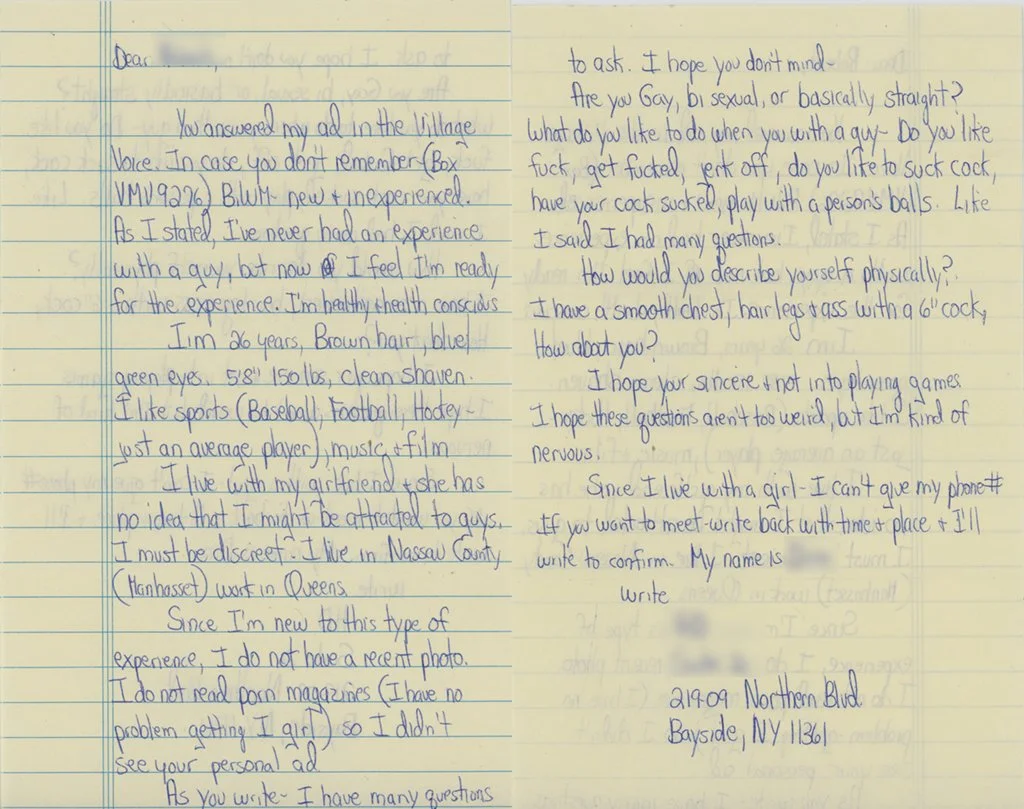 Dear ,
You answered my ad in the Village
Voice. In case you don't remember-(Box
VMV9276) BiWM- new + inexperienced.
As I stated, I've never had an experience
with a guy, but now I feel I'm ready
for the experience. I'm healthy + health conscious
I'm 26 years, Brown hair, blue/
green eyes. 5'8" 150 lbs, clean shaven.
I like sports (Baseball, Football, Hockey-
just an average player), music, + film
I live with my girlfriend + she has
no idea that I might be attracted to guys.
I must be discreet- I live in Nassau County
(Manhasset) work in Queens.
Since I'm new to this type of
experience, I do not have a recent photo.
I do not read porn magazines (I have no
problem getting I girl) so I didn't
see your personal ad
As you write- I have many questions
to ask. I hope you don't mind-
Are you Gay, bi sexual, or basically straight?
What do you like to do when you with a guy- Do you like
fuck, get fucked, jerk off, do you like to suck cock,
have your cock sucked, play with a person's balls. Like
I said I had many questions.
How would you describe yourself physically?
I have a smooth chest, hair legs + ass with a 6" cock,
How about you?
I hope your sincere + not into playing games
I hope these questions aren't too weird, but I'm kind of
nervous.
Since I live with a girl- I can't give my phone#
If you want to meet-write back with time + place + I'll
write to confirm. My name is
write
219-09 Northern Blvd
Bayside, NY 11361